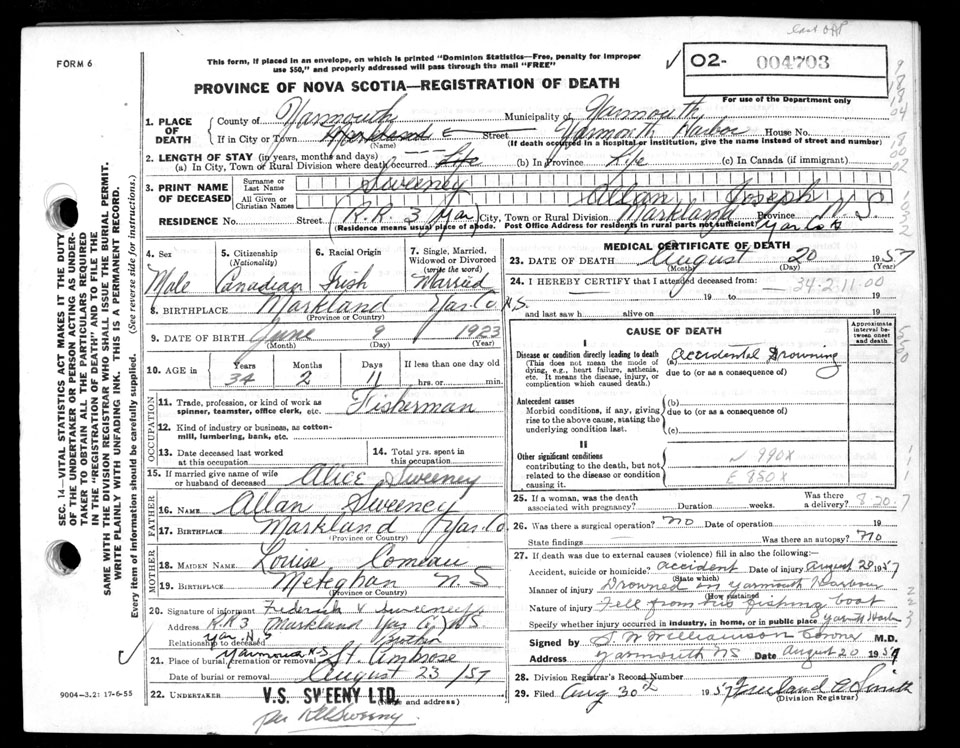 East Off
FORM 6
This form, if placed in an envelope, on which is printed "Dominion Statistics—Free, penalty for improper
use $50," and properly addressed will pass through the mail "FREE"
02- 004703
PROVINCE OF NOVA SCOTIA—REGISTRATION OF DEATH
For use of the Department only
1. PLACE OF DEATH County of Yarmouth Municipality of Yarmouth
If in City or Town Markland (Name) Street Yarmouth Harbor House No.
(If death occurred in a hospital or institution, give the name instead of street and number)
2. LENGTH OF STAY (in years, months and days)
(a) In City, Town or Rural Division where death occurred Life (b) In Province Life (c) In Canada (if immigrant)
3. PRINT NAME OF DECEASED Surname or Last Name Sweeney
All Given or Christian Names Allan Joseph
RESIDENCE No. Street (R.R. 3 Yar) City, Town or Rural Division Markland Province N.S.
(Residence means usual place of abode. Post Office Address for residents in rural parts not sufficient) Yar. Co
4. Sex Male
5. Citizenship (Nationality) Canadian
6. Racial Origin Irish
7. Single, Married, Widowed or Divorced (write the word) Married
8. BIRTHPLACE Markland Yar. Co. N.S.
(Province or Country)
9. DATE OF BIRTH June 9 1923
(Month) (Day) (Year)
10. AGE in Years 34 Months 2 Days 11 If less than one day old hrs. or min.
OCCUPATION
11. Trade, profession or kind of work as spinner, teamster, office clerk, etc. Fisherman
12. Kind of industry or business, as cotton-mill, lumbering, bank, etc.
13. Date deceased last worked at this occupation
14. Total yrs. spent in this occupation
15. If married give name of wife or husband of deceased Alice Sweeney
FATHER
16. NAME Allan Sweeney
17. BIRTHPLACE Markland Yar. Co.
(Province or Country)
MOTHER
18. MAIDEN NAME Louise Comeau
19. BIRTHPLACE Meteghan N.S
(Province or Country)
20. Signature of informant Frederick V Sweeney
Address R.R 3 Markland Yar Co NS
Yar. N.S
Relationship to deceased Brother
21. Place of burial, cremation or removal Yarmouth N.S St. Ambrose
Date of burial or removal August 23/57
22. UNDERTAKER V.S. SWEENY LTD.
(Name and address)
per Sweeny.
9004—3.21 17-6-55
MEDICAL CERTIFICATE OF DEATH
23. DATE OF DEATH August 20 1957
(Month) (Day) (Year)
24. I HEREBY CERTIFY that I attended deceased from: 34-2-11-00
19 to 19
and last saw h alive on 19
CAUSE OF DEATH
Approximate interval between onset and death
I
Disease or condition directly leading to death (a) Accidental Drowning
(This does not mean the mode of dying, e.g., heart failure, asthenia, etc. It means the disease, injury, or complication which caused death.)
due to (or as a consequence of)
Antecedent causes
Morbid conditions, if any, giving rise to the above cause, stating the underlying condition last.
(b)
due to (or as a consequence of)
(c)
II
Other significant conditions
contributing to the death, but not related to the disease or condition causing it.
N 990X
E 850X
25. If a woman, was the death associated with pregnancy? Duration weeks. Was there a delivery?
8.20.7
26. Was there a surgical operation? No Date of operation 19
State findings Was there an autopsy? No
27. If death was due to external causes (violence) fill in also the following:
Accident, suicide or homicide? accident Date of injury August 20 1957
(State which)
Manner of injury Drowned in Yarmouth Harbour
(How sustained)
Nature of injury Fell from his fishing boat
Specify whether injury occurred in industry, in home, or in public place Yarmouth Harbor
Signed by S W Williamson Coroner M.D.
Address Yarmouth NS Date August 20 1957
28. Division Registrar's Record Number
29. Filed Aug 30th 1957 Freeland C Smith
(Division Registrar)
SEC. 14—VITAL STATISTICS ACT MAKES IT THE DUTY
OF THE UNDERTAKER OR PERSON ACTING AS UNDER-
TAKER TO OBTAIN ALL THE PARTICULARS REQUIRED
IN THE "REGISTRATION OF DEATH" AND TO FILE THE
SAME WITH THE DIVISION REGISTRAR WHO SHALL ISSUE THE BURIAL PERMIT.
WRITE PLAINLY WITH UNFADING INK. THIS IS A PERMANENT RECORD.
Every item of information should be carefully supplied. (See reverse side for instructions.)